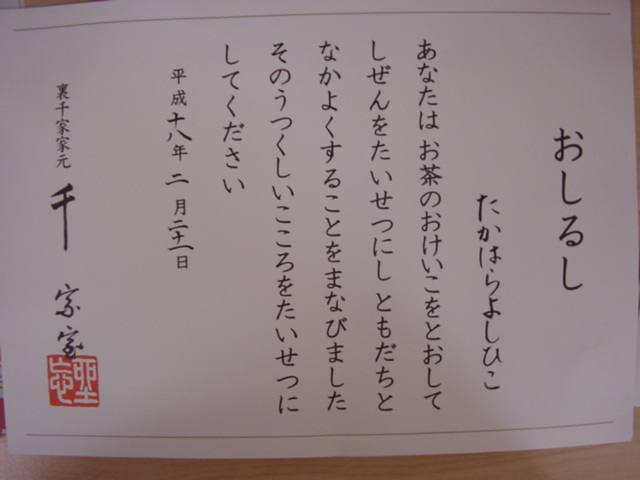 おしるし
たかはらよしひこ
あなたは お茶のおけいこをとおして
しぜんをたいせつにし ともだちと
なかよくすることをまなびました
そのうつくしいこころをたいせつに
してください
平成十八年 二 月二十一日
裏千家家元 千 宗室